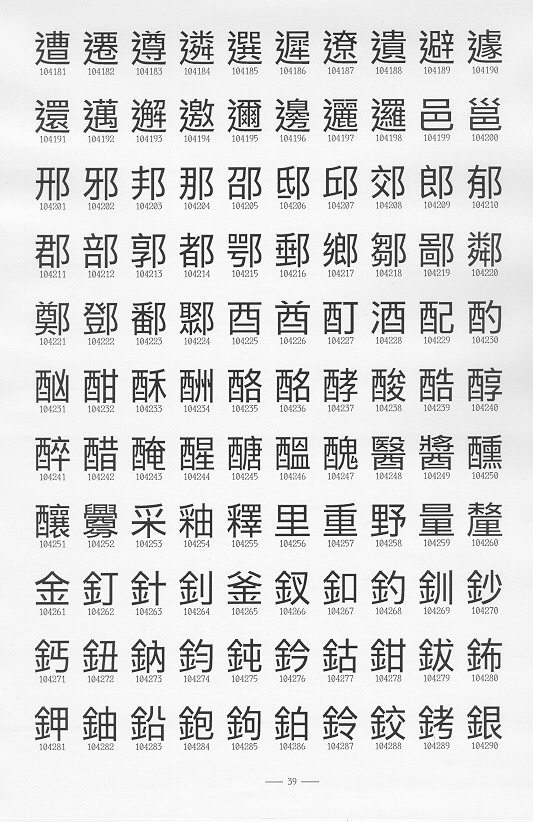 遭 遷 遵 遴 選 遲 遼 遺 避 遽
104181 104182 104183 104184 104185 104186 104187 104188 104189 104190
還 邁 邂 邀 邇 邊 邐 邏 邑 邕
104191 104192 104193 104194 104195 104196 104197 104198 104199 104200
邢 邪 邦 那 邵 邸 邱 郊 郎 郁
104201 104202 104203 104204 104205 104206 104207 104208 104209 104210
郡 部 郭 都 鄂 郵 鄉 鄒 鄙 鄰
104211 104212 104213 104214 104215 104216 104217 104218 104219 104220
鄭 鄧 鄱 酉 酋 酊 酒 配 酌
104221 104222 104223 104224 104225 104226 104227 104228 104229 104230
酗 酣 酥 酬 酪 酩 酵 酸 酷 醇
104231 104232 104233 104234 104235 104236 104237 104238 104239 104240
醉 醋 醃 醒 醣 醞 醜 醫 醬 醺
104241 104242 104243 104244 104245 104246 104247 104248 104249 104250
釀 釁 采 釉 釋 里 重 野 量 釐
104251 104252 104253 104254 104255 104256 104257 104258 104259 104260
金 釘 針 釗 釜 釵 釦 釣 釧 鈔
104261 104262 104263 104264 104265 104266 104267 104268 104269 104270
鈣 鈕 鈉 鈞 鈍 鈐 鈷 鉗 鈸 鈽
104271 104272 104273 104274 104275 104276 104277 104278 104279 104280
鉀 鈾 鉛 鉋 鉤 鉑 鈴 鉸 銬 銀
104281 104282 104283 104284 104285 104286 104287 104288 104289 104290
— 39 —